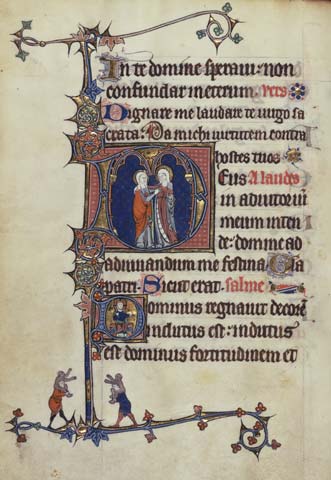 In te domine speraui: non
confundar in eternum. vers
Dignare me laudare te uirgo sa
crata: Da michi uirtutem contra
hostes tuos
Deus A laudes
in adiutoriu
meum inten
de: domine ad
adiuuandum me festina Gla
patri. Sicut erat. salme
Dominus regnauit decore
indutus est: indutus
est dominus fortitudinem et